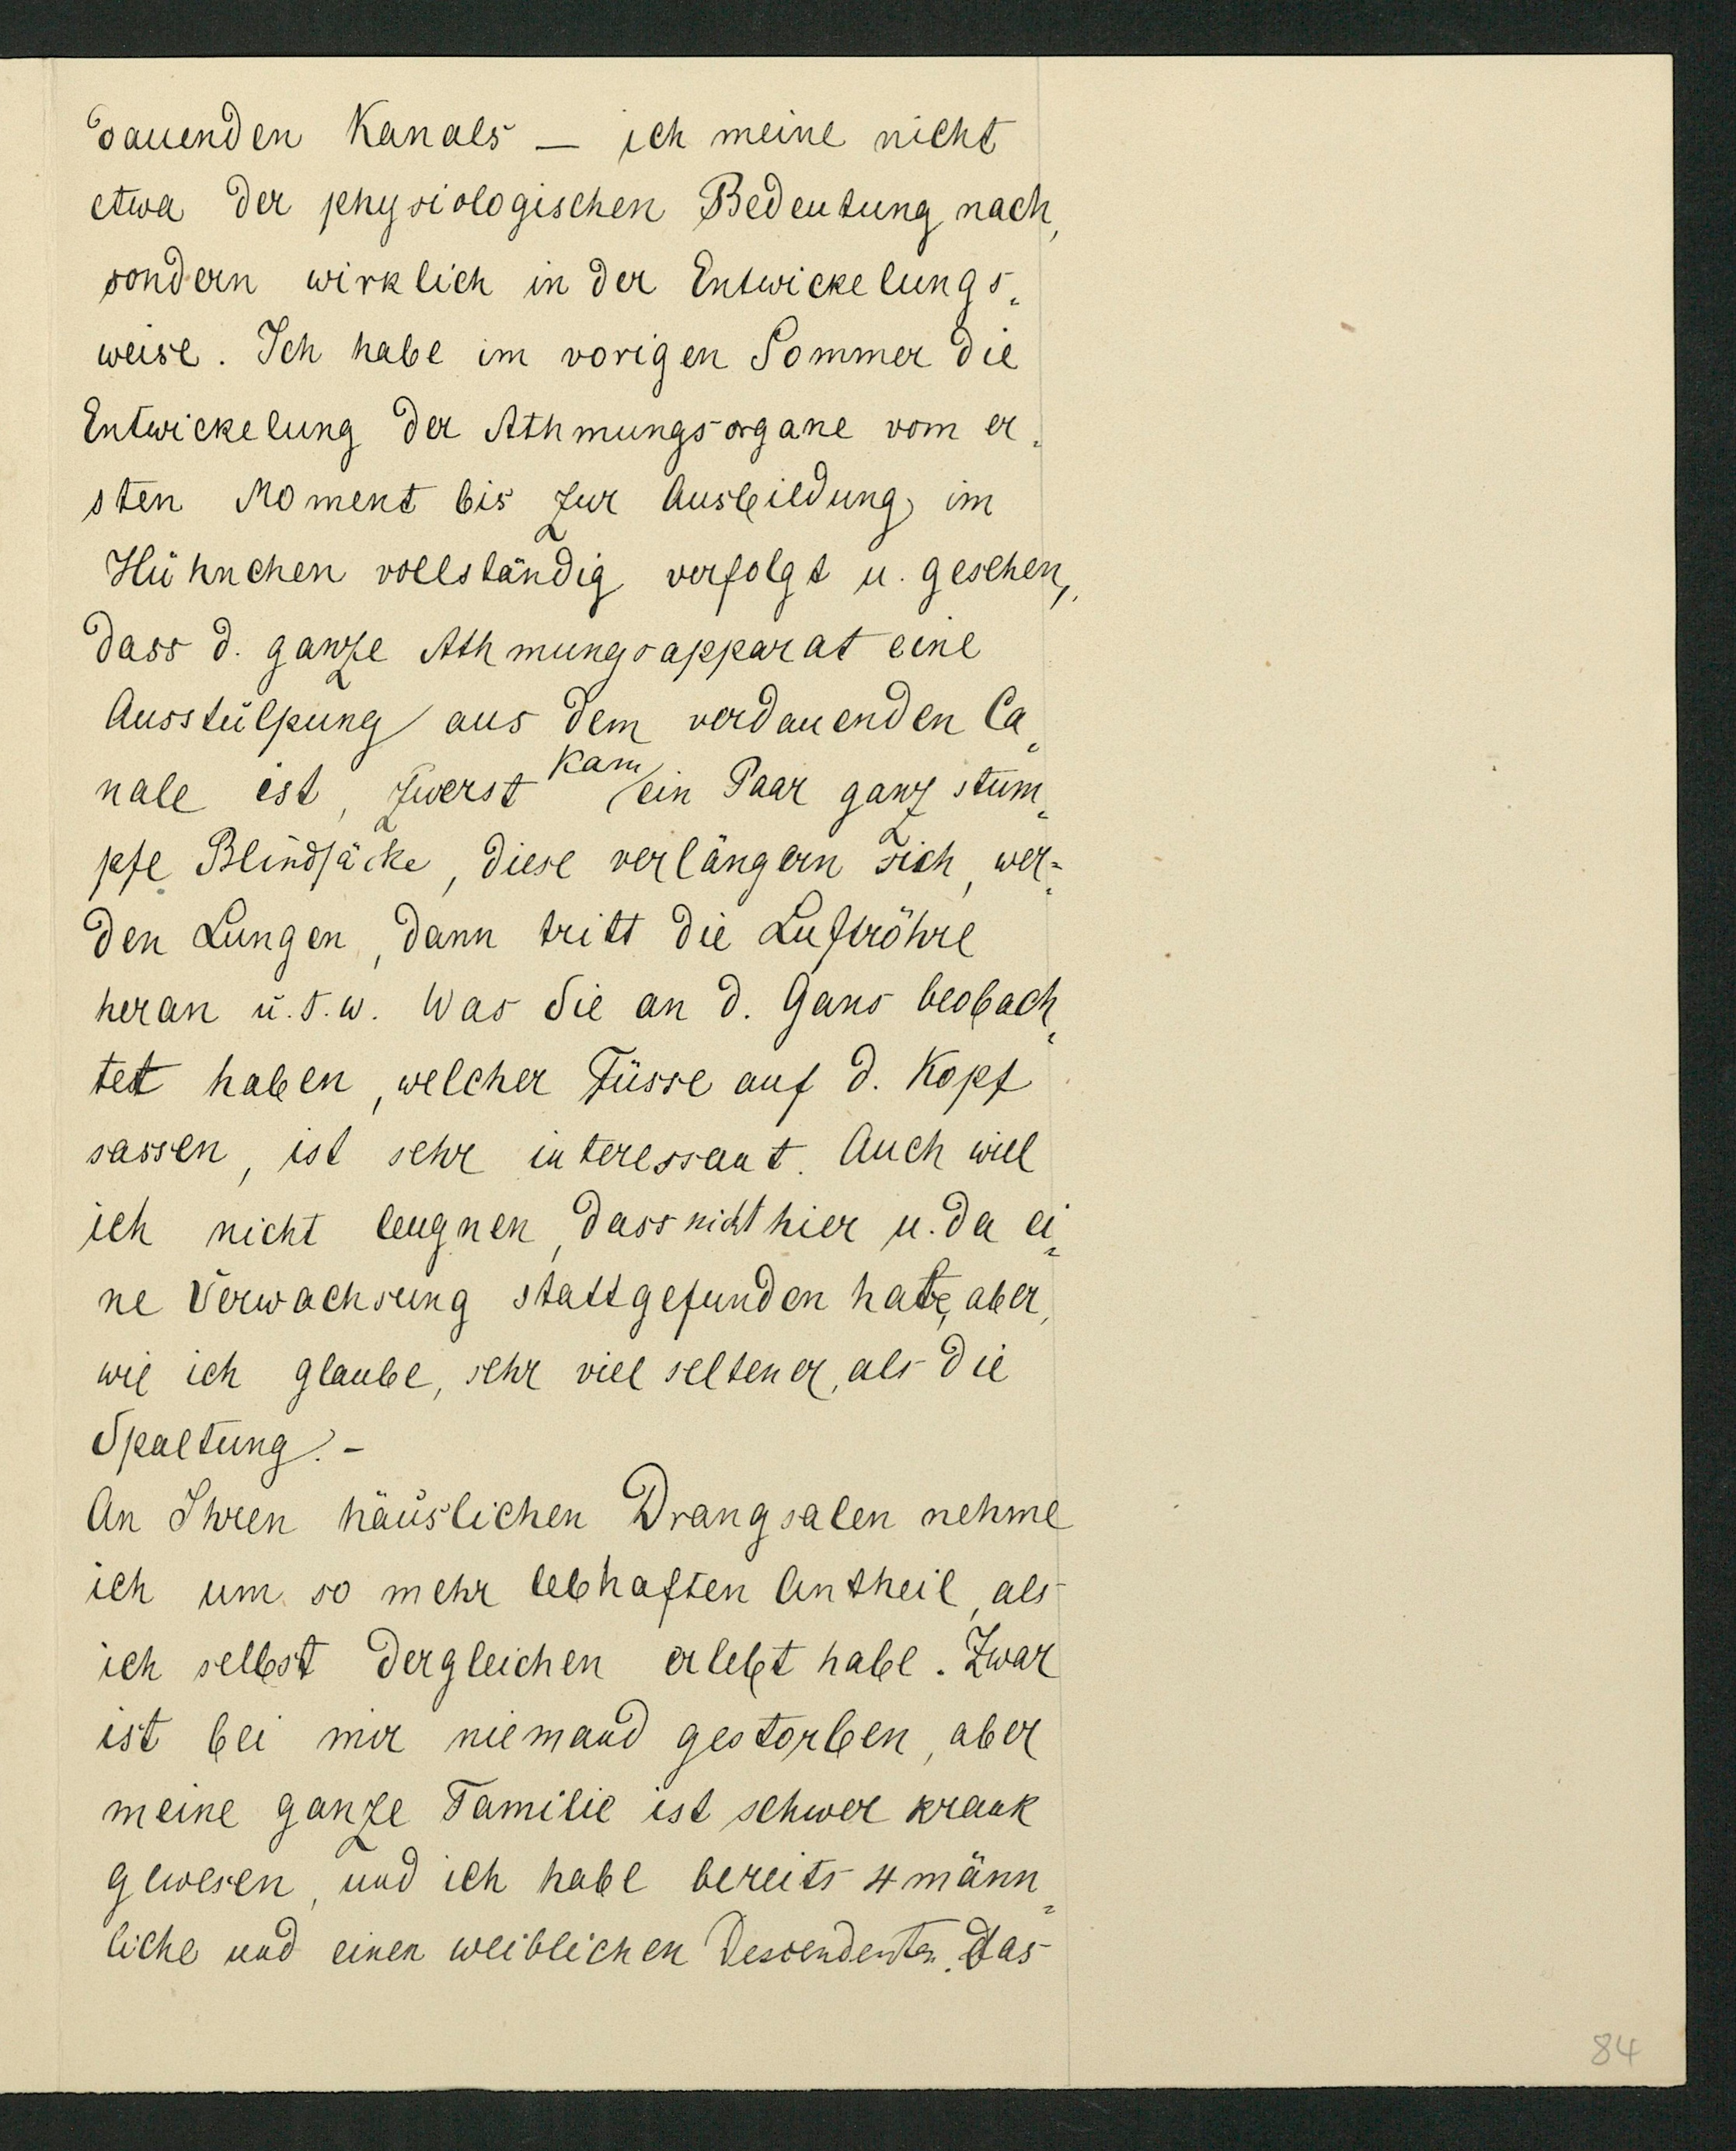 dauenden Kanals — ich meine nicht
etwa der physiologischen Bedeutung nach,
sondern wirklich in der Entwickelungs=
weise. Ich habe im vorigen Sommer die
Entwickelung der Athmungsorgane vom er=
sten Moment bis zur Ausbildung im
Hühnchen vollständig verfolgt u. gesehen,
dass d. ganze Athmungsapparat eine
Ausstülpung aus dem verdauenden Ca=
nale ist, zuerst kam ein Paar ganz stum=
pfe Blindsäcke, diese verlängern sich, wer=
den Lungen, dann tritt die Luftröhre
heran u.s.w. Was Sie an d. Gans beobach=
tet haben, welcher Füsse auf d. Kopf
sassen, ist sehr interessant. Auch will
ich nicht leugnen, dass nicht hier u. da ei=
ne Verwachsung stattgefunden hate, aber,
wie ich glaube, sehr viel seltener, als die
Spaltung. –
An Ihren häuslichen Drangsalen nehme
ich um so mehr lebhaften Antheil, als
ich selbst dergleichen erlebt habe. Zwar
ist bei mir niemand gestorben, aber
meine ganze Familie ist schwer krank
gewesen, und ich habe bereits 4 männ=
liche und einen weiblichen Descendenten. Das
84